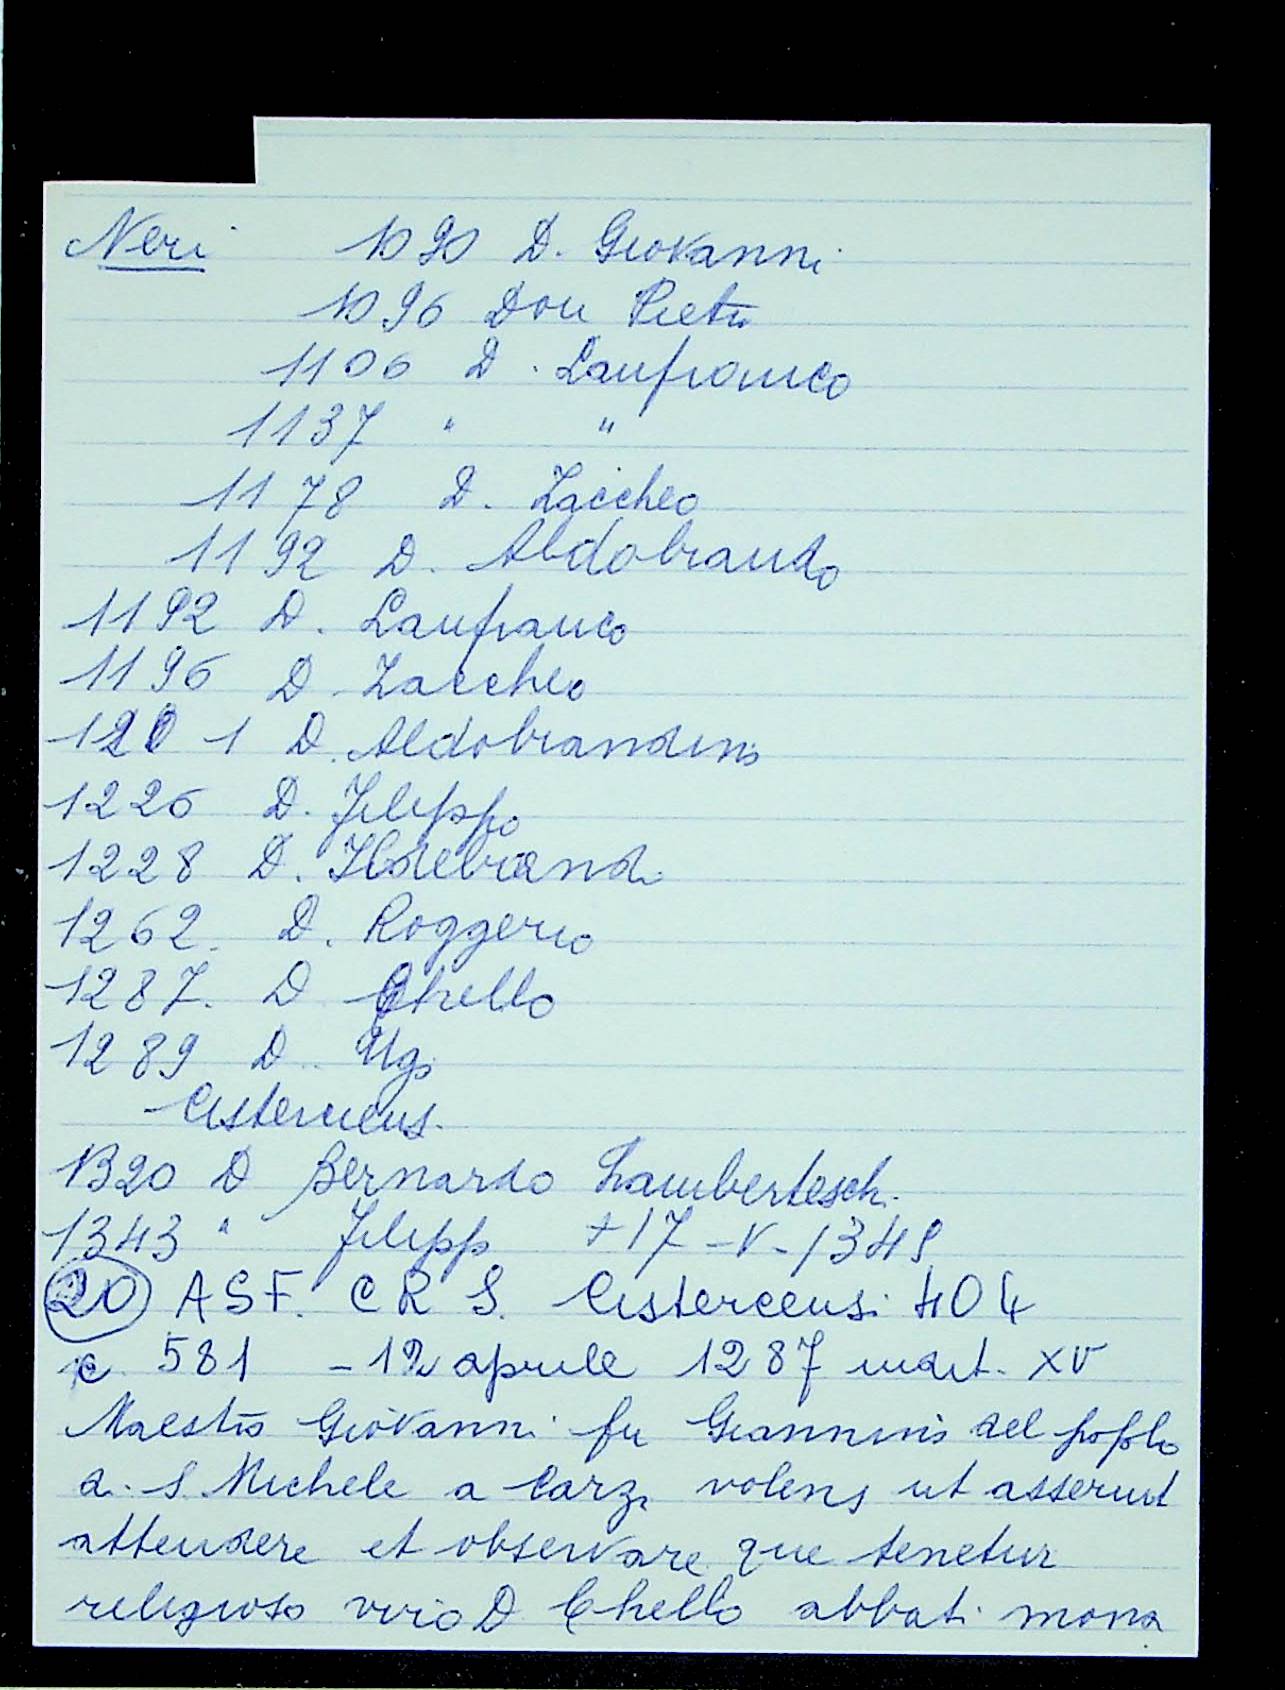 Neri 1090 D. Giovanni
1096 Don Pietro
1106 D. Lanfranco
1137 " "
1178 D. Zaccheo
1192 D. Aldobrando
1192 D. Lanfranco
1196 D. Zaccheo
1201 D. Aldobrandino
1226 D. Filippo
1228 D. Ildebrando
1262. D. Roggerio
1287. D Chello
1289 D. Ugo
Cistercens.
1320 D Bernardo Lambertesch.
1343 " Filipp +17-V-1349
20 ASF. CRS. Cistercensi 404
c. 581 - 12 aprile 1287 indit. XV
Maestro Giovanni fu Giannino del popolo
d. S. Michele a Carza volens ut asseruit
attendere et observare que tenetur
religioso viro D Chello abbati mona